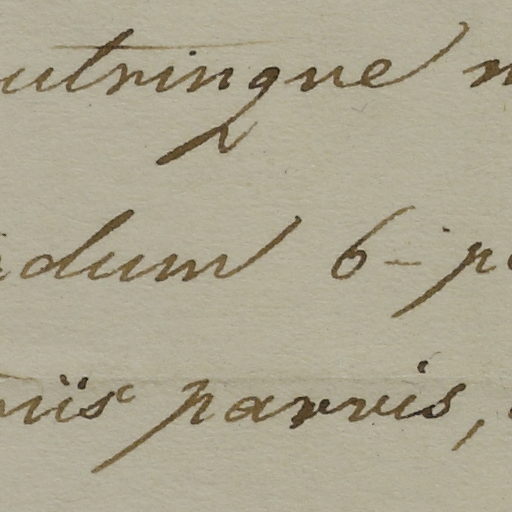 utrinque
dum 6-p
riis parvis,